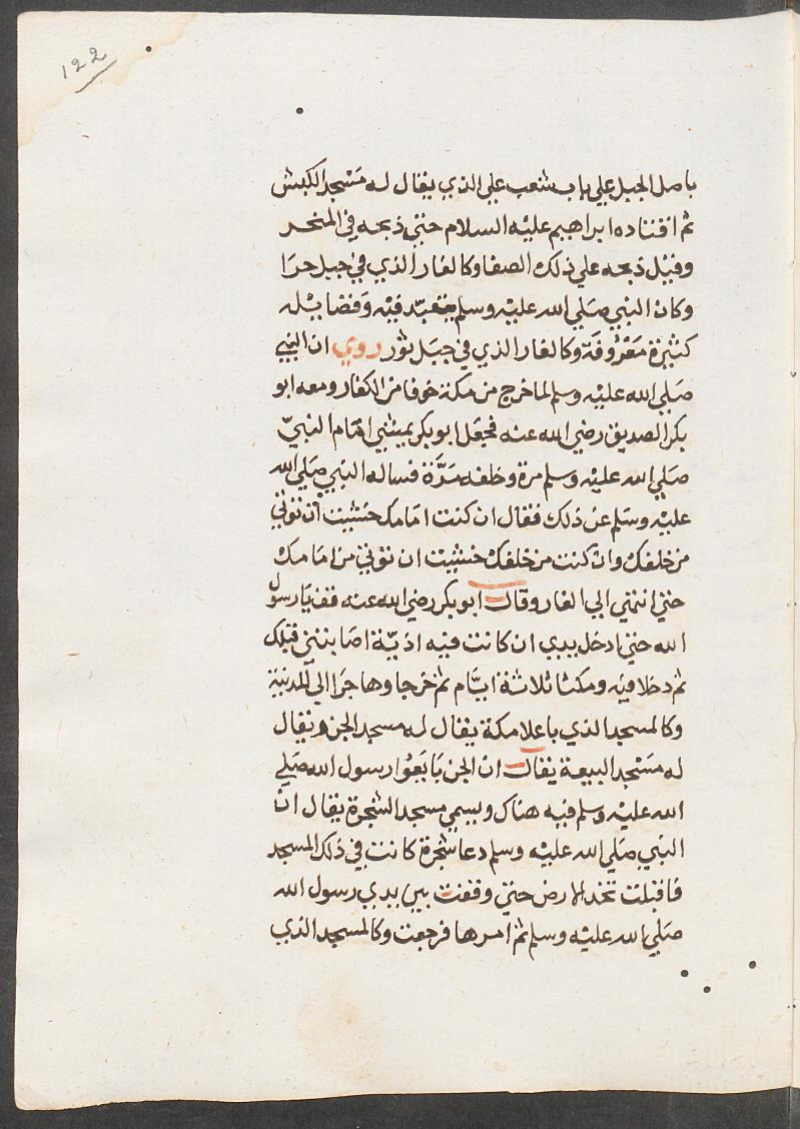 122
باصل الجبل علي باب شعب علي الذي يقال له مَسْجد الكبش
ثم اقتاده ابراهيم عليه السلام حتي ذبحه في المنحر
وقيل ذبحه علي ذلك الصفا وكالغار الذي في جبل حرَا
وكان النبي صَلي الله عليه وسلم يتعبّد فيه وَفضايله
كثيرة مَعْرُوفَة وكالغار الذي في جبَل ثور روي ان النبي
صَلي الله عليه وسلم لما خرج من مكة خوفا من الكفار ومعه ابو
بكر الصديق رضي الله عنه فجعل ابو بكر يمشي امَام النبيّ
صَلي الله عليه وسلم مرة وخلفه مَرَّة فساله النبي صَلي الله
عليه وسَلم عن ذلك فقال ان كنت امَامك خشيت ان نوتي
من خلفك وان كنت من خلفك خشيت ان نوتي من امَامك
حتي انتهي الي الغار وقال ابو بكر رضي الله عنه قف يَا رسول
الله حتي ادخل يدي ان كانت فيه اذيّة اصَابتني قبلك
ثم دخلا فيه ومكثا ثلاثة ايَّام ثم خرجا وهاجرَا الي المدينة
وكالمسجد الذي باعلا مكة يقال له مسجد الجن ويقال
له مَسْجد البيعة يقال ان الجن بَايَعُوا رسول الله صَلي
الله عليه وسلم فيه هناك ويسمي مسجد الشجرة يقال ان
النبي صَلي الله عليه وسلم دعا شجرة كانت في ذلك المسجد
فاقبلت تخد الارض حتي وقفت بين يدي رسول الله
صَلي الله عليه وسلم ثم امرها فرجعت وكالمسجد الذي